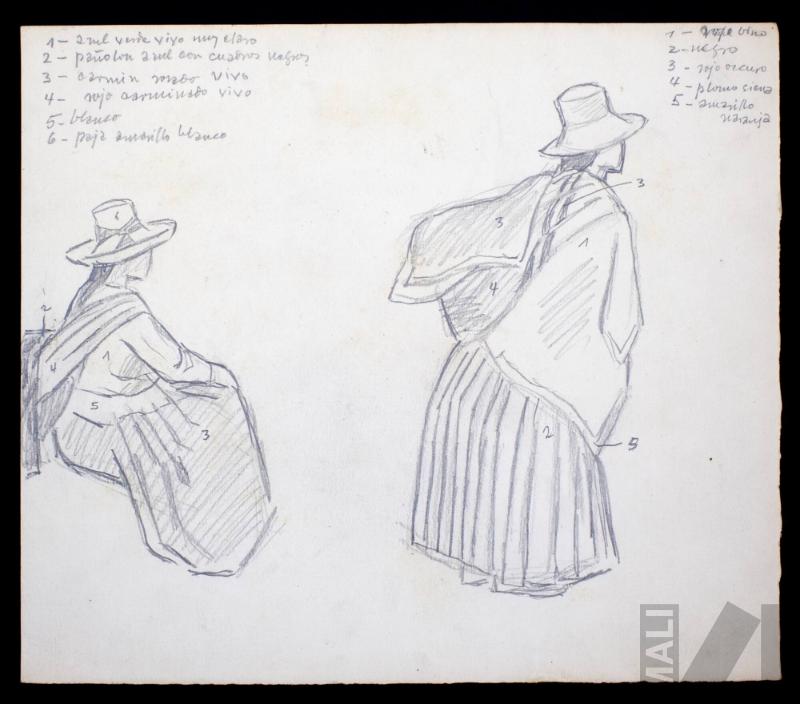 1 - azul verde vivo muy claro
2 - pañolon azul con cuadros negros
3 - carmin rosado vivo
4 - rojo carminado vivo
5 - blanco
6 - paja amarillo blanco
1 - rojo vino
2 - negro
3 - rojo oscuro
4 - plomo siena
5 - amarillo
naranja
6
2
4
1
5
3
3
3
1
4
2
5
MALI